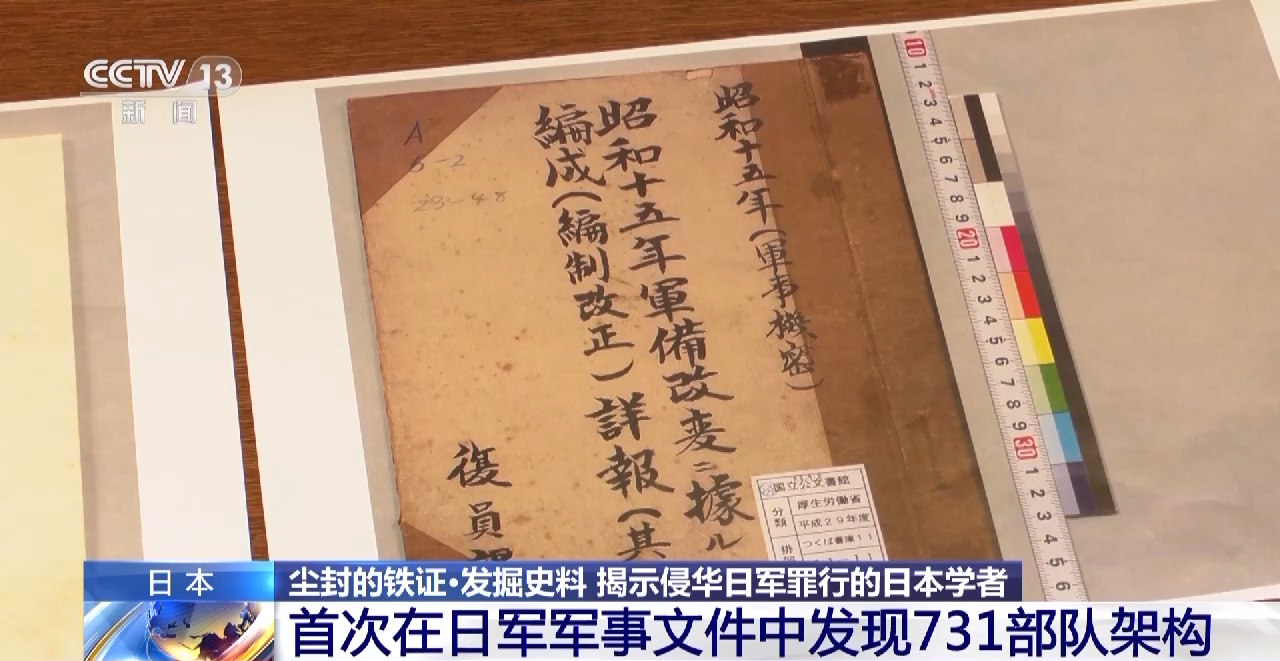 CCTV 13
新闻
昭和十五年(軍事機密)
昭和十五年軍備改変ニ據ル
編成(編制改正)詳報(其
復員課
A
5-2
23-48
国立公文書館
分類
厚生労働省
平成29年度
つくば書庫11
排架
10 1 2 3 4 5 6 7 8 9 20 1 2 3 4 5 6 7 8 9 30 1 2 3 4 5 6
日本
尘封的铁证·发掘史料 揭示侵华日军罪行的日本学者
首次在日军军事文件中发现731部队架构